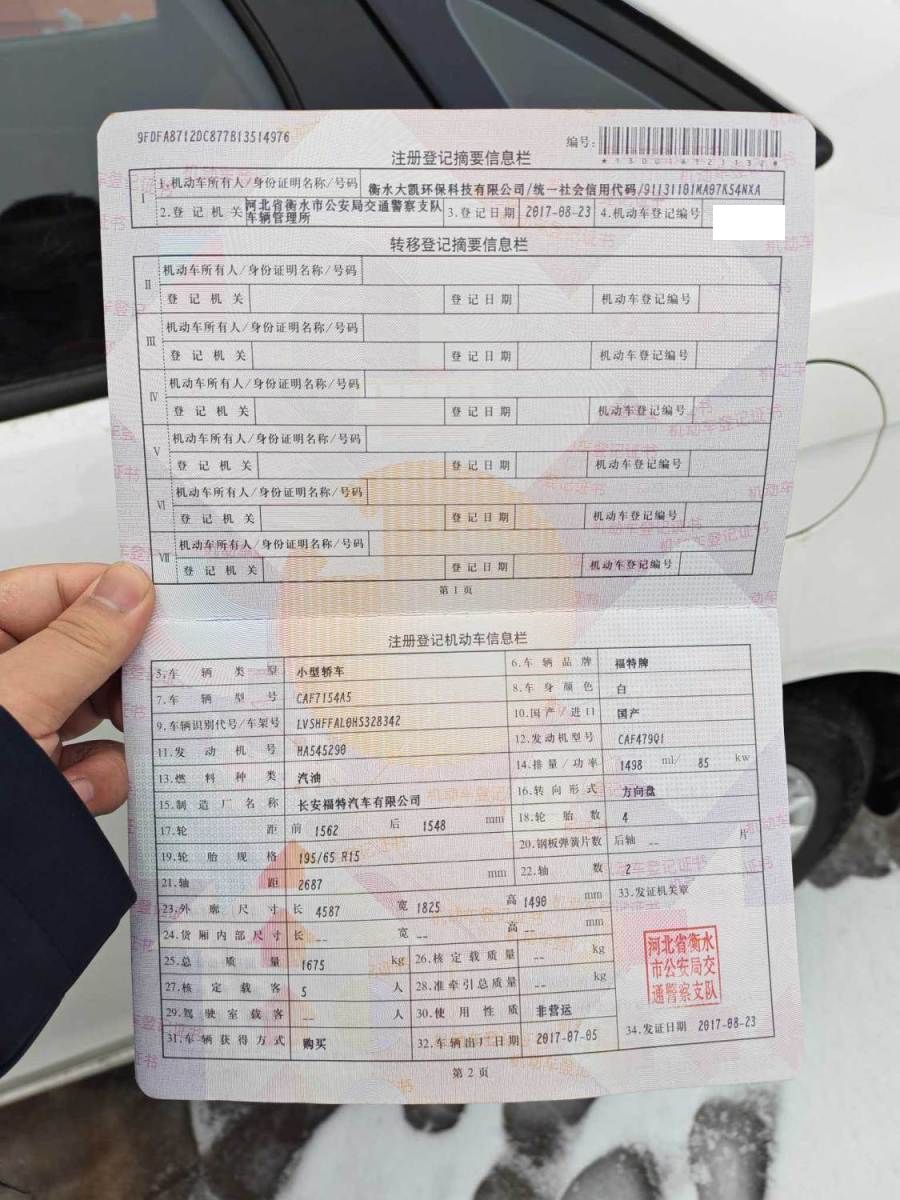 9FDFA8712DC877B13514976
编号:
注册登记摘要信息栏
I 1.机动车所有人/身份证明名称/号码 衡水大凯环保科技有限公司/统一社会信用代码/91131101MA07K54NXA
2.登记机关 河北省衡水市公安局交通警察支队车辆管理所 3.登记日期 2017-08-23 4.机动车登记编号
转移登记摘要信息栏
II 机动车所有人/身份证明名称/号码
登记机关 登记日期 机动车登记编号
III 机动车所有人/身份证明名称/号码
登记机关 登记日期 机动车登记编号
IV 机动车所有人/身份证明名称/号码
登记机关 登记日期 机动车登记编号
V 机动车所有人/身份证明名称/号码
登记机关 登记日期 机动车登记编号
VI 机动车所有人/身份证明名称/号码
登记机关 登记日期 机动车登记编号
VII 机动车所有人/身份证明名称/号码
登记机关 登记日期 机动车登记编号
第1页
注册登记机动车信息栏
5.车辆类型 小型轿车 6.车辆品牌 福特牌
7.车辆型号 CAF7154A5 8.车身颜色 白
9.车辆识别代号/车架号 LVSHFFAL0HS328342 10.国产/进口 国产
11.发动机号 HA545290 12.发动机型号 CAF479Q1
13.燃料种类 汽油 14.排量/功率 1498 ml/ 85 kw
15.制造厂名称 长安福特汽车有限公司 16.转向形式 方向盘
17.轮距 前 1562 后 1548 mm 18.轮胎数 4
19.轮胎规格 195/65 R15 20.钢板弹簧片数 后轴 -- 片
21.轴距 2687 mm 22.轴数 2
23.外廓尺寸 长 4587 宽 1825 高 1490 mm 33.发证机关章
24.货厢内部尺寸 长 -- 宽 -- 高 -- mm
25.总质量 1675 kg 26.核定载质量 -- kg
27.核定载客 5 人 28.准牵引总质量 -- kg
29.驾驶室载客 -- 人 30.使用性质 非营运
31.车辆获得方式 购买 32.车辆出厂日期 2017-07-05 34.发证日期 2017-08-23
河北省衡水
市公安局交
通警察支队
第2页